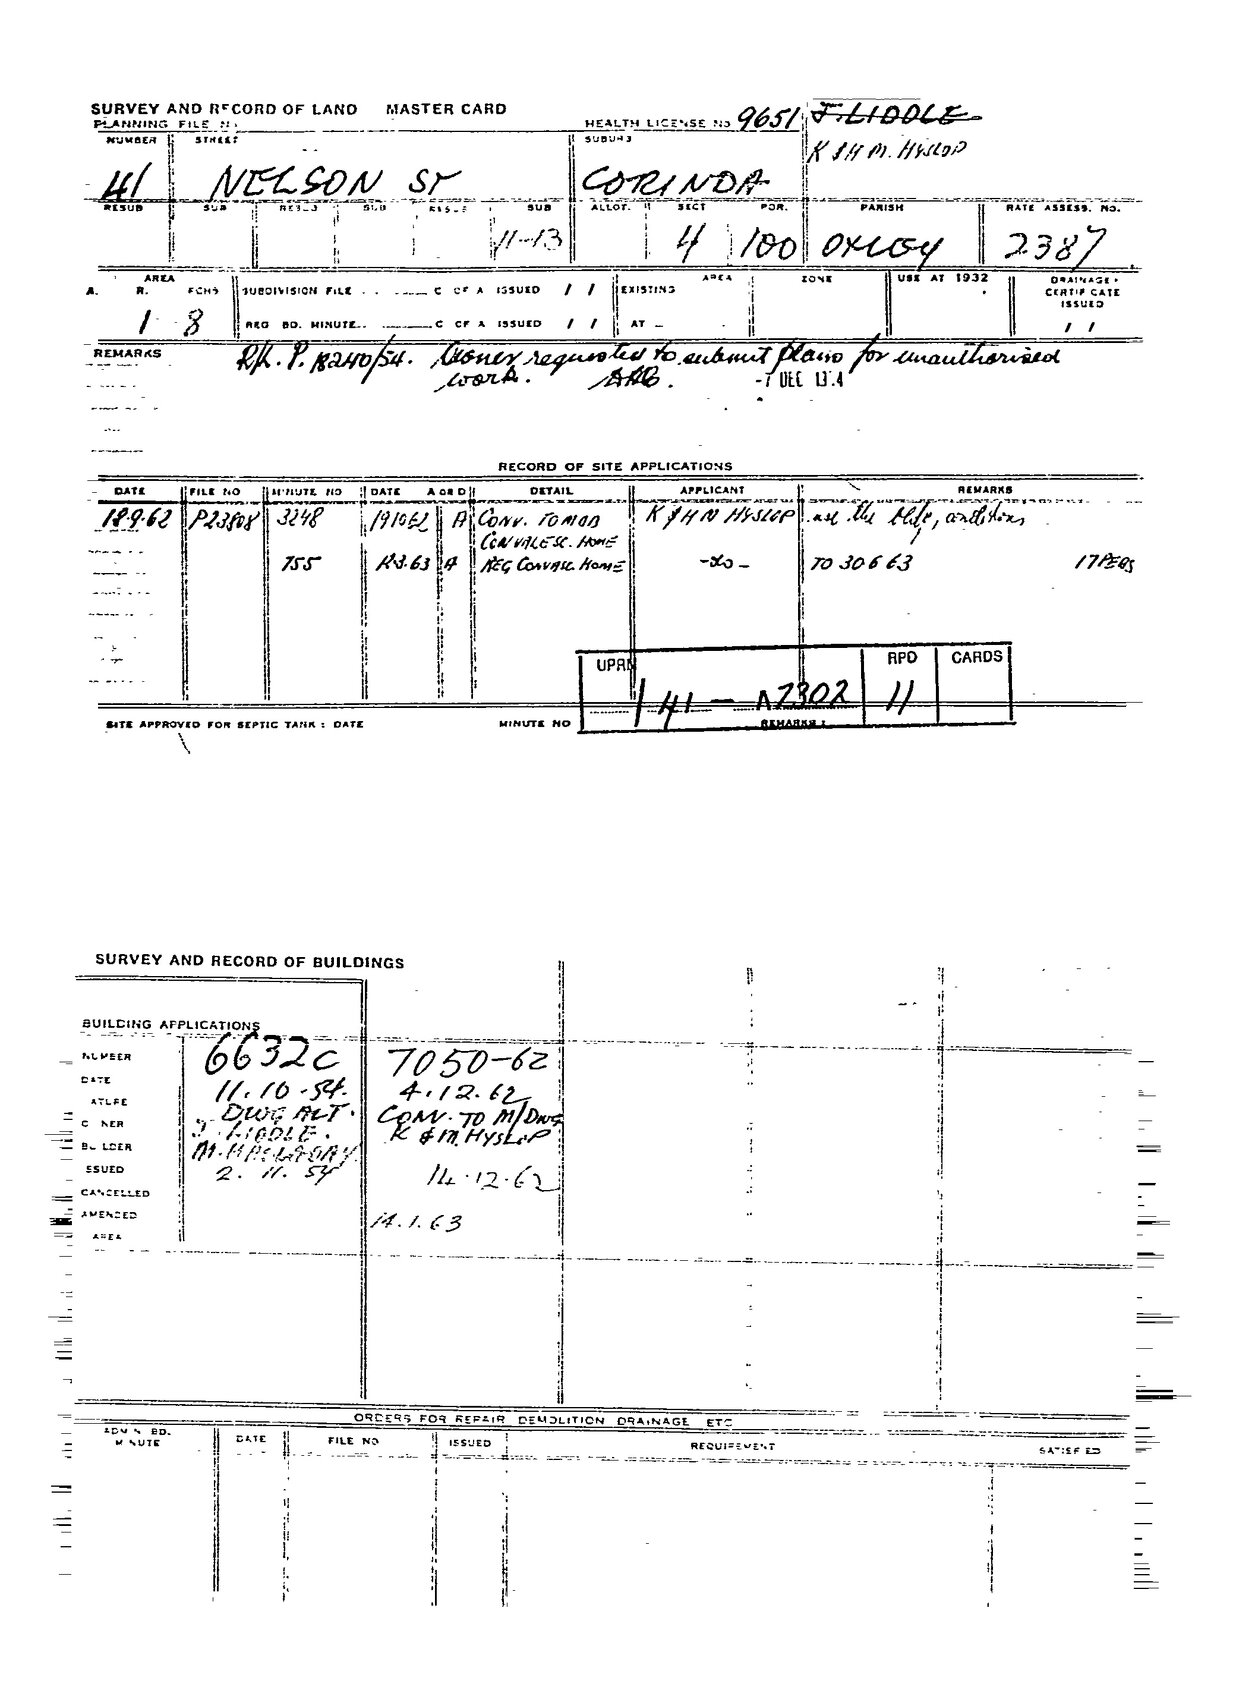 SURVEY AND RECORD OF LAND MASTER CARD
PLANNING FILE No HEALTH LICENSE No 9651 J. LIDDLE
NUMBER STREET SUBURB K & H M. HYSLOP
41 NELSON ST CORINDA
RESUB SUB RESUB SUB RESUB SUB ALLOT. SECT POR. PARISH RATE ASSESS. NO.
11-13 4 100 OXLEY 2387
AREA AREA ZONE USE AT 1932 DRAINAGE
A. R. PCHS SUBDIVISION FILE C OF A ISSUED / / EXISTING CERTIFICATE
ISSUED
1 8 REG BD. MINUTE C OF A ISSUED / / AT / /
REMARKS Owner requested to submit plans for unauthorised
work. -7 DEC
RECORD OF SITE APPLICATIONS
DATE FILE NO MINUTE NO DATE A OR D DETAIL APPLICANT REMARKS
18.9.62 P23808 3248 191062 A CONV. K & H M HYSLOP use the bldg, conditions
CONVALESC. HOME
755 63 A REG CONVASC. HOME -do- TO 30 6 63 17 PERS
UPRN RPD CARDS
41 — 11
SITE APPROVED FOR SEPTIC TANK : DATE MINUTE NO REMARKS :
SURVEY AND RECORD OF BUILDINGS
BUILDING APPLICATIONS
NUMBER 6632C 7050-62
DATE 11.10.54. 4.12.62
NATURE DWG ALT. CONV. TO M/DWG
OWNER J. LIDDLE. K & M. HYSLOP
BUILDER
ISSUED 2. 11. 54 14.12.62
CANCELLED
AMENDED 14.1.63
AREA
ORDERS FOR REPAIR DEMOLITION DRAINAGE ETC
ADMIN BD. MINUTE DATE FILE NO ISSUED REQUIREMENT SATISFIED